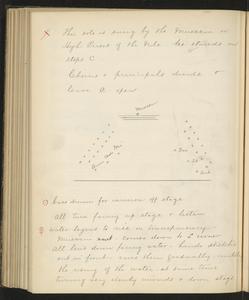 x This solo is sung by the Muezzin or
High Priest of the Nile. He stands on
steps C
Chorus & principals divide &
leave C. open
Muezzin
Bass drum for cannon off stage
All turn facing up stage & listen
Water begins to rise on transparency
Muezzin exit comes down to L corner
All turn down facing water - hands stretched
out in front - raise them gradually with
the rising of the water at same time
turning very slowly inwards & down stage